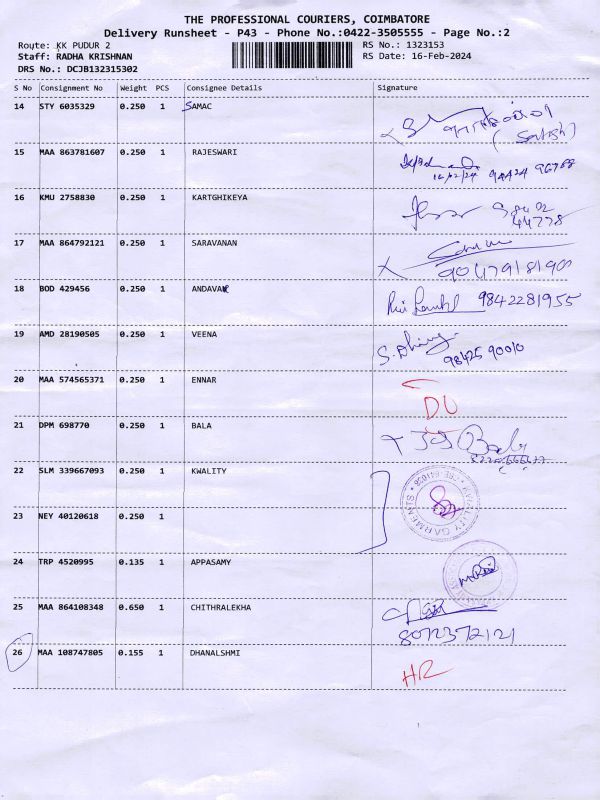 THE PROFESSIONAL COURIERS, COIMBATORE
Delivery Runsheet - P43 - Phone No.:0422-3505555 - Page No.:2
Route: KK PUDUR 2 RS No.: 1323153
Staff: RADHA KRISHNAN RS Date: 16-Feb-2024
DRS No.: DCJB132315302
S No Consignment No Weight PCS Consignee Details Signature
14 STY 6035329 0.250 1 SAMAC
(Satish)
15 MAA 863781607 0.250 1 RAJESWARI
16/02/24 98424 96788
16 KMU 2758830 0.250 1 KARTGHIKEYA
44778
17 MAA 864792121 0.250 1 SARAVANAN
18 BOD 429456 0.250 1 ANDAVAR 9842281955
19 AMD 28190505 0.250 1 VEENA S. Dhiny
98425 90010
20 MAA 574565371 0.250 1 ENNAR
DU
21 DPM 698770 0.250 1 BALA Bala
22 SLM 339667093 0.250 1 KWALITY
KWALITY GARMENTS
23 NEY 40120618 0.250 1
24 TRP 4520995 0.135 1 APPASAMY
25 MAA 864108348 0.650 1 CHITHRALEKHA
8072372121
26 MAA 108747805 0.155 1 DHANALSHMI
HR